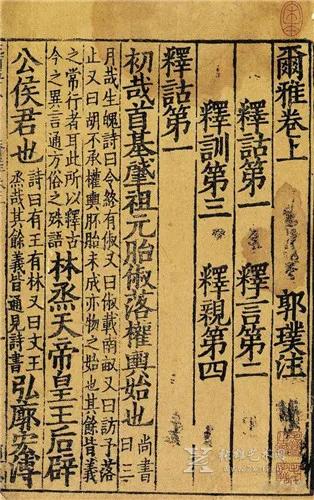 爾雅卷上　郭璞注
釋詁第一　釋言第二
釋訓第三　釋親第四
釋詁第一
初哉首基肇祖元胎俶落權輿始也尚書曰三
月哉生魄詩曰令終有俶又曰俶載南畝又曰訪予落
止又曰胡不承權輿胚胎未成亦物之始也其餘皆義
之常行者耳此所以釋古
今之異言通方俗之殊語林烝天帝皇王后辟
公侯君也詩曰有王有林又曰文王
烝哉其餘義皆通見詩書弘廓宏溥